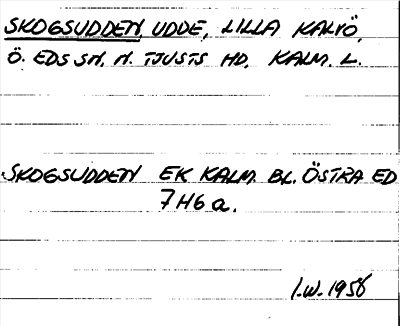 SKOGSUDDEN, UDDE, LILLA KALVÖ,
Ö. EDS SN. N. TJUSTS HD. KALM. L.
SKOGSUDDEN EK KALM. BL. ÖSTRA ED
7H6a.
I.W. 1958